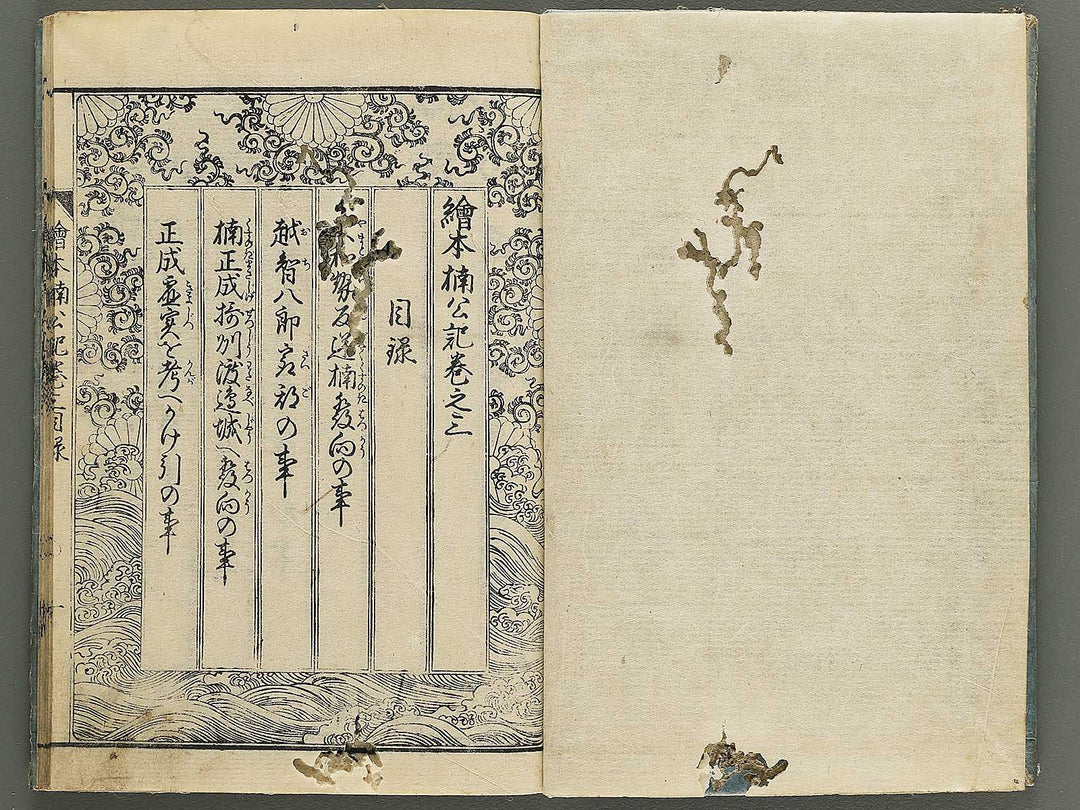 繪本楠公記卷之三
目録
反逆楠發向の事
越智八郎最期の事
楠正成摂州渡邉城へ發向の事
正成虚実を考へかけ引の事
繪本楠公記卷之三目録